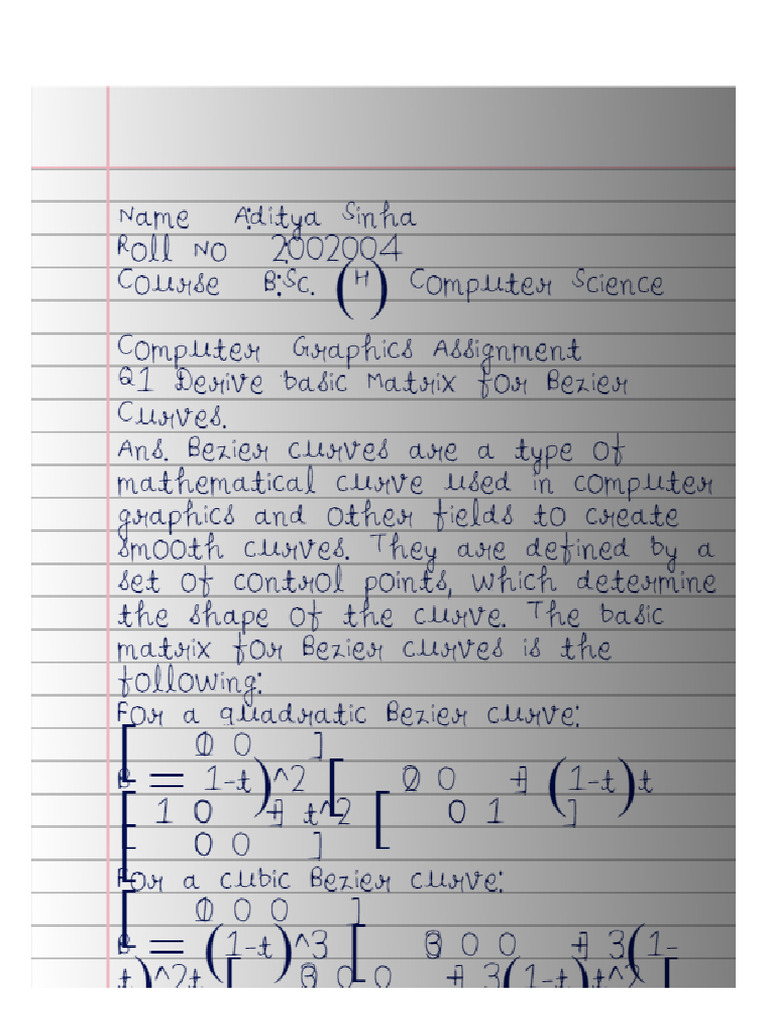 Name Aditya Sinha
Roll No 2002004
Course B.Sc. (H) Computer Science
Computer Graphics Assignment
Q1 Derive basic Matrix for Bezier
Curves.
Ans. Bezier curves are a type of
mathematical curve used in computer
graphics and other fields to create
smooth curves. They are defined by a
set of control points, which determine
the shape of the curve. The basic
matrix for Bezier curves is the
following:
For a quadratic Bezier curve:
[ 0 0 ]
B = 1-t)^2 [ 0 0 ] (1-t)t
[ 1 0 ] t^2 [ 0 1 ]
[ 0 0 ]
For a cubic Bezier curve:
[ 0 0 0 ]
B = (1-t)^3 [ 0 0 + 3(1-
t)^2t [ 0 0 + 3(1-t)t^2 [